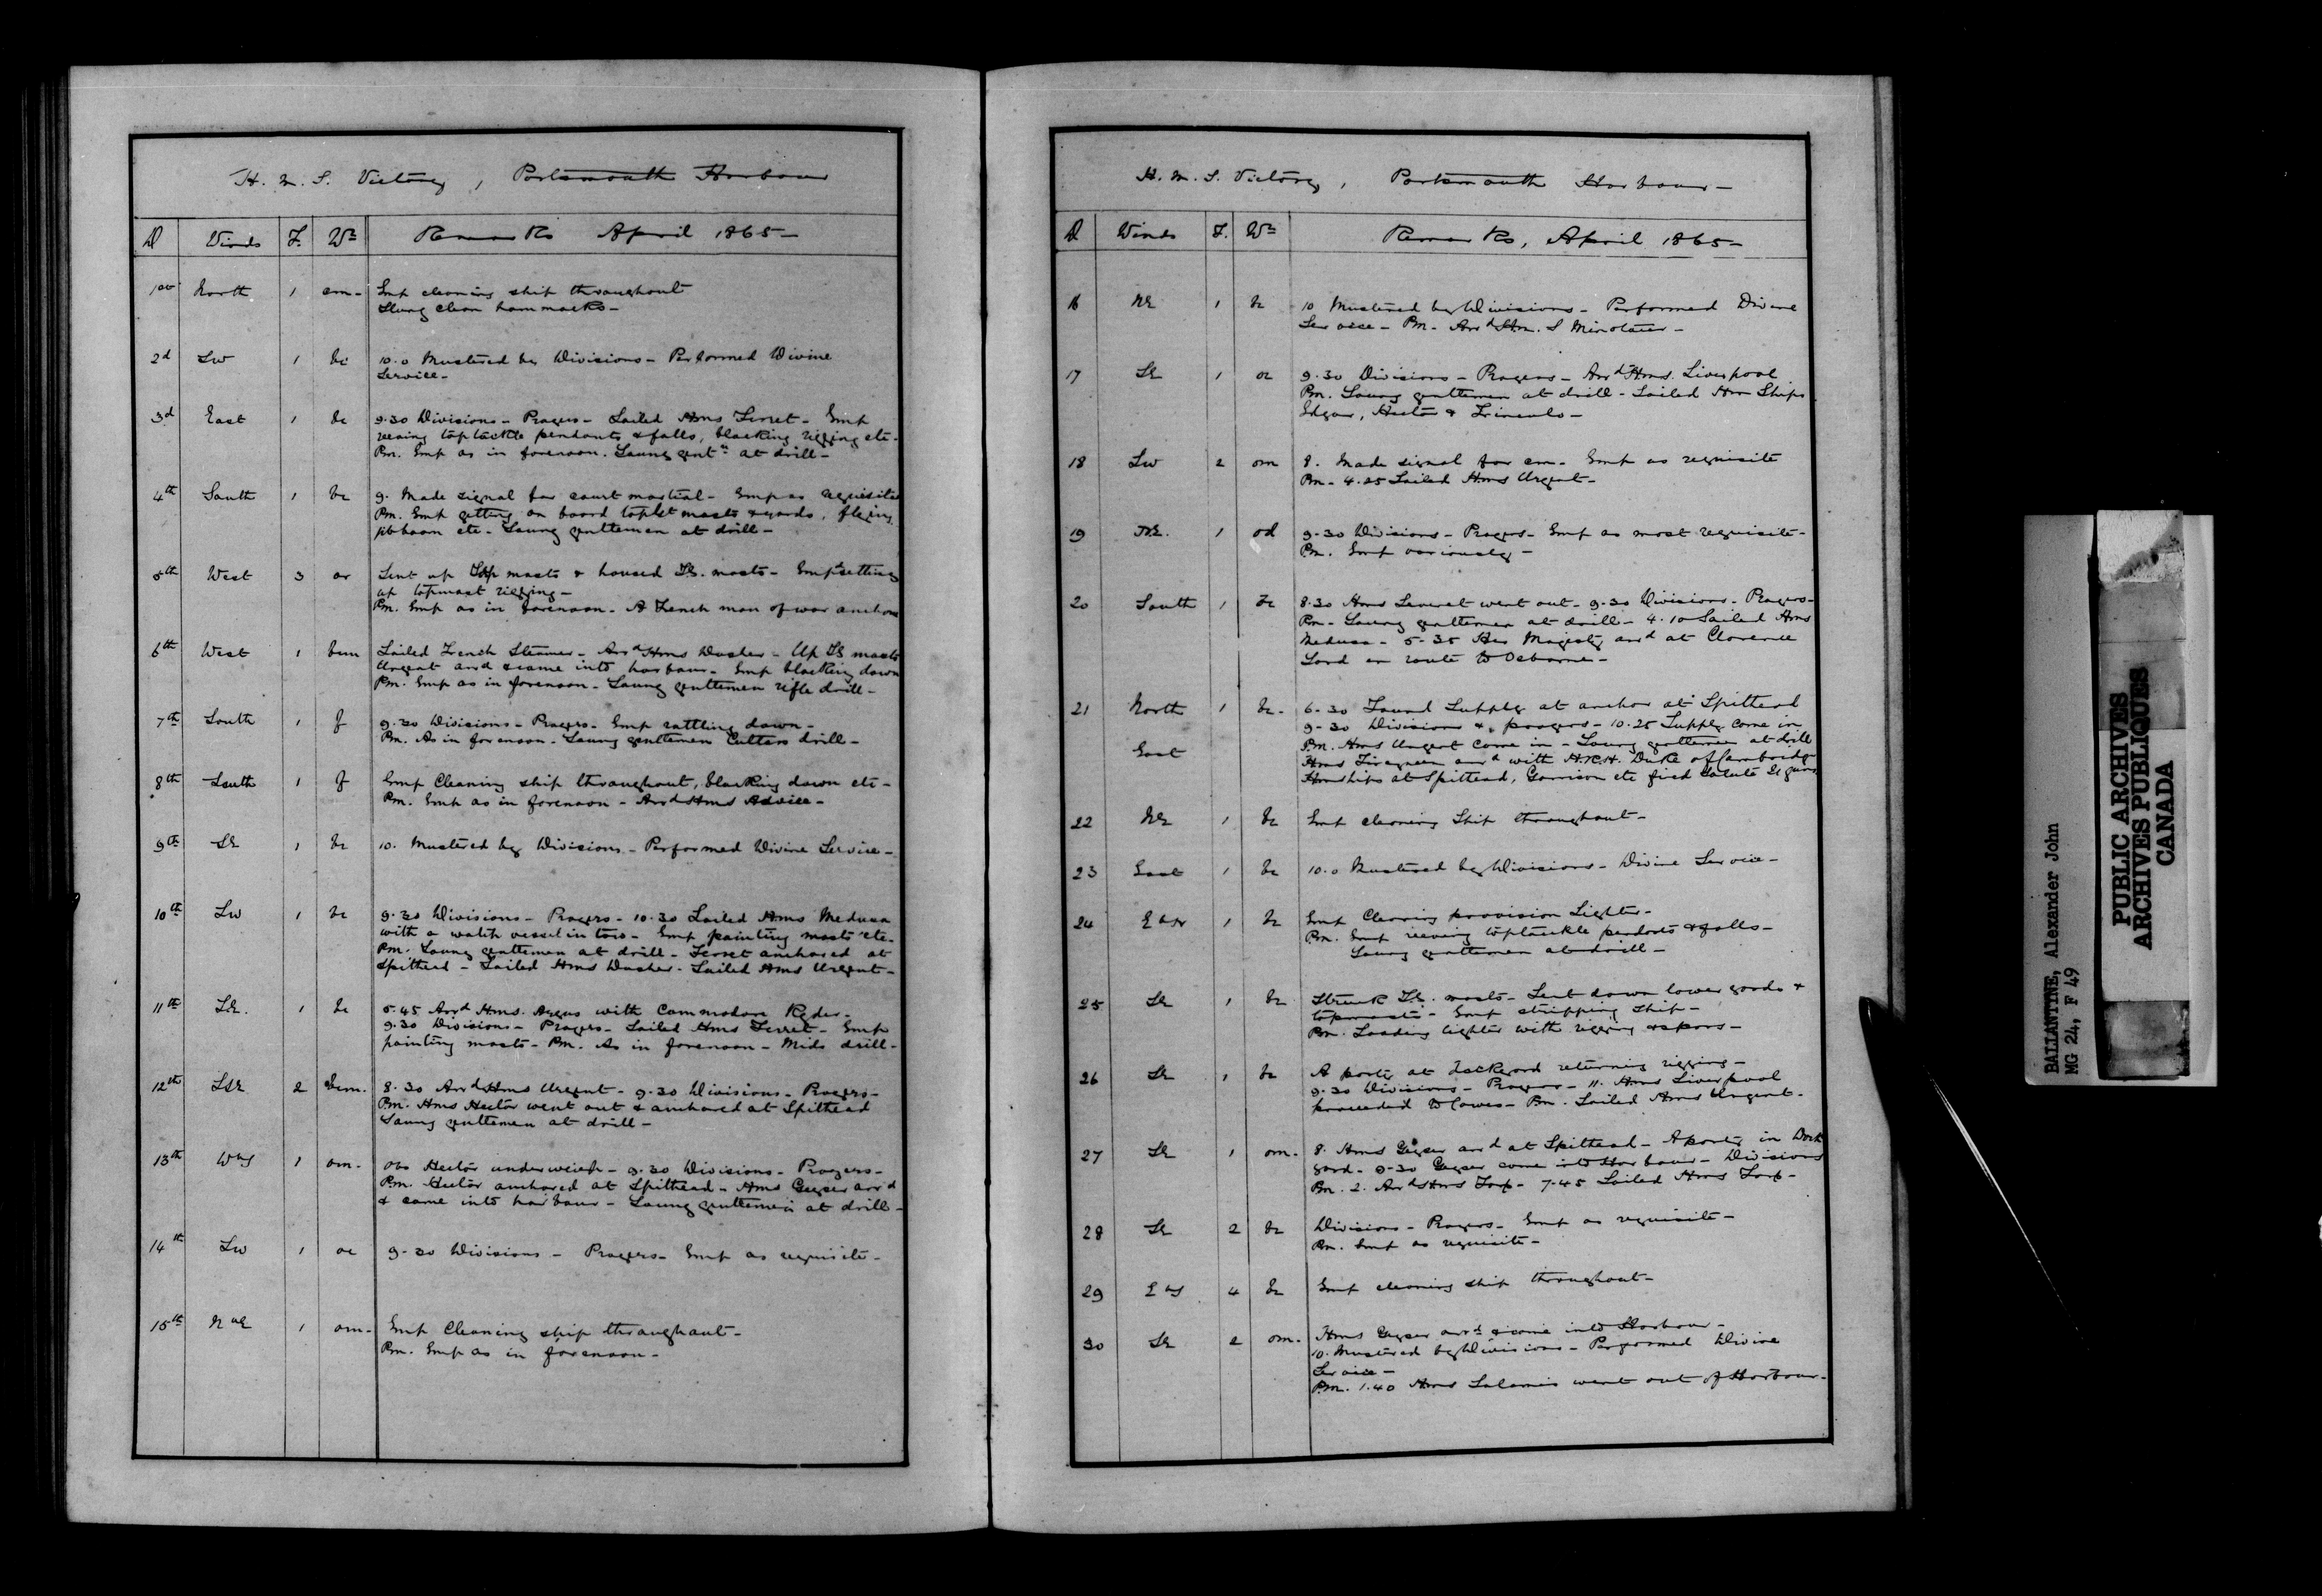 H. M. S. Victory, Portsmouth Harbour
D Winds F. Wr Remarks April 1865-
1st North 1 cm- Emp cleaning ship throughout
Slung clean hammocks-
2d SW 1 bc 10.0 Mustered by Divisions- Performed Divine
Service-
3d East 1 bc 9.30 Divisions- Prayers- Sailed Hms Terret- Emp
reeving toptackle pendants & falls, blacking rigging etc-
Pm. Emp as in forenoon. Young gentn at drill-
4th South 1 bc 9. Made signal for court martial- Emp as requisite
Pm. Emp getting on board toplt masts & yards, flying
jibboom etc- Young gentlemen at drill-
5th West 3 or Sent up masts & housed TG. masts- Emp setting
up topmast rigging-
Pm. Emp as in forenoon- A French man of war anchored
6th West 1 bcm Sailed French Steamer- Arrd Hms Dasher- Up TG masts
Urgent arrd & came into harbour- Emp blacking down
Pm. Emp as in forenoon- Young gentlemen rifle drill-
7th South 1 f 9.30 Divisions- Prayers- Emp rattling down-
Pm. As in forenoon- Young gentlemen Cutlass drill-
8th South 1 f Emp Cleaning ship throughout, blacking down etc-
Pm. Emp as in forenoon- Arrd Hms Advice-
9th SE 1 bc 10. Mustered by Divisions- Performed Divine Service-
10th SW 1 bc 9.30 Divisions- Prayers- 10.30 Sailed Hms Medusa
with a watch vessel in tow- Emp painting masts etc-
Pm. Young gentlemen at drill- Terret anchored at
Spithead- Sailed Hms Dasher- Sailed Hms Urgent-
11th SE. 1 bc 5.45 Arrd Hms. Argus with Commodore Ryder-
9.30 Divisions- Prayers- Sailed Hms Terret- Emp
painting masts- Pm. As in forenoon- Mids drill-
12th SSE 2 bcm. 8.30 Arrd Hms Urgent- 9.30 Divisions- Prayers-
Pm. Hms Hector went out & anchored at Spithead
Young gentlemen at drill-
13th Wly 1 om- Obs Hector underweigh- 9.30 Divisions- Prayers-
Pm. Hector anchored at Spithead- Hms Geyser arrd
& came into harbour- Young gentlemen at drill-
14th SW 1 oc 9.30 Divisions- Prayers- Emp as requisite-
15th 1 om- Emp Cleaning ship throughout-
Pm. Emp as in forenoon-
H. M. S. Victory, Portsmouth Harbour-
D Winds F. Wr Remarks, April 1865-
16 NE 1 bc 10 Mustered by Divisions- Performed Divine
Service- Pm- Arrd H.m.S Minotaur-
17 SE 1 oc 9.30 Divisions- Prayers- Arrd Hms. Liverpool
Pm. Young gentlemen at drill- Sailed Hm Ships
Edgar, Hector & Trinculo-
18 SW 2 om 8. Made signal for cm- Emp as requisite
Pm- 4.25 Sailed Hms Urgent-
19 NE. 1 od 9.30 Divisions- Prayers- Emp as most requisite-
Pm. Emp variously-
20 South 1 bc 8.30 Hms Leveret went out- 9.30 Divisions- Prayers-
Pm- Young gentlemen at drill- 4.10 Sailed Hms
Medusa- 5.35 Her Majesty arrd at Clarence
Yard en route to Osborne-
21 North 1 bc- 6.30 Found Supply at anchor at Spithead
9.30 Divisions & prayers- 10.25 Supply came in
East Pm. Hms Urgent came in- Young gentlemen at drill
Hms Firequeen arrd with H.R.H. Duke of Cambridge
Hm ships at Spithead, Garrison etc fired Salute 21 guns
22 NE 1 bc Emp cleaning Ship throughout-
23 East 1 bc 10.0 Mustered by Divisions- Divine Service-
24 1 bc Emp Clearing provision Lighter-
Pm. Emp reeving toptackle pendants & falls-
Young gentlemen at drill-
25 SE 1 bc Struck TG. masts- Sent down lower yards &
topmasts- Emp stripping ship-
Pm. Loading lighter with rigging & spars-
26 SE 1 bc A party at dockyard returning rigging-
9.30 Divisions- Prayers- 11. Hms Liverpool
proceeded to Cowes- Pm. Sailed Hms Urgent-
27 SE 1 om- 8. Hms Geyser arrd at Spithead- A party in Dock
yard- 9.30 Geyser came into Harbour- Divisions
Pm. 2. Arrd Hms 7.45 Sailed Hms
28 SE 2 bc Divisions- Prayers- Emp as requisite-
Pm. Emp as requisite-
29 Ely 4 bc Emp cleaning ship throughout-
30 SE 2 om- Hms Geyser arrd & came into Harbour-
10. Mustered by Divisions- Performed Divine
Service-
Pm. 1.40 Hms Salamis went out of Harbour-
BALLANTINE, Alexander John
MG 24, F 49
PUBLIC ARCHIVES
ARCHIVES PUBLIQUES
CANADA